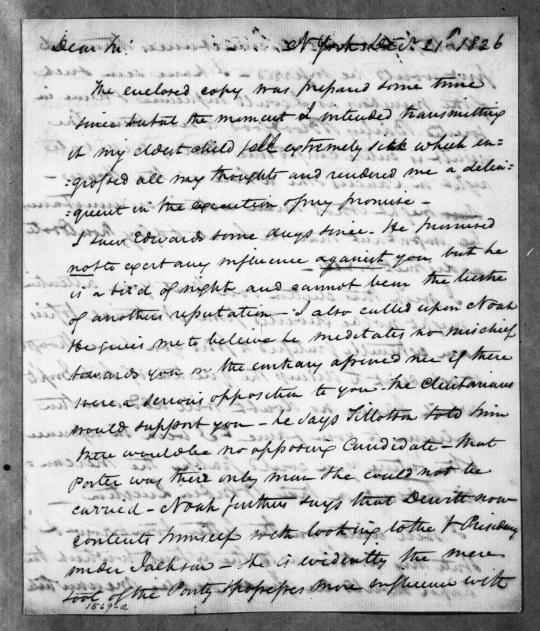 Dear Sir. N. York Dec. 21st 1826
The enclosed copy was prepared some time
since but at the moment I intended transmitting
it my eldest child fell extremely sick which en=
=grossed all my thoughts and rendered me a delin=
=quent in the execution of my promise –
I saw Edwards some days since – He promised
not to exert any influence against you, but he
is a bird of night and cannot bear the lustre
of anothers reputation – I also called upon Noah
He gives me to believe he meditates no mischief
towards you on the contrary assured me if there
were a serious opposition to you – the Clintonians
would support you – he says Tillotson told him
there would be no opposing Candidate – that
Porter was their only man & he could not be
carried – Noah further says that Dewitt now
contents himself with looking to the V Presidency
under Jackson – He is evidently the mere
tool of the Party & possesses more influence with
1569-a